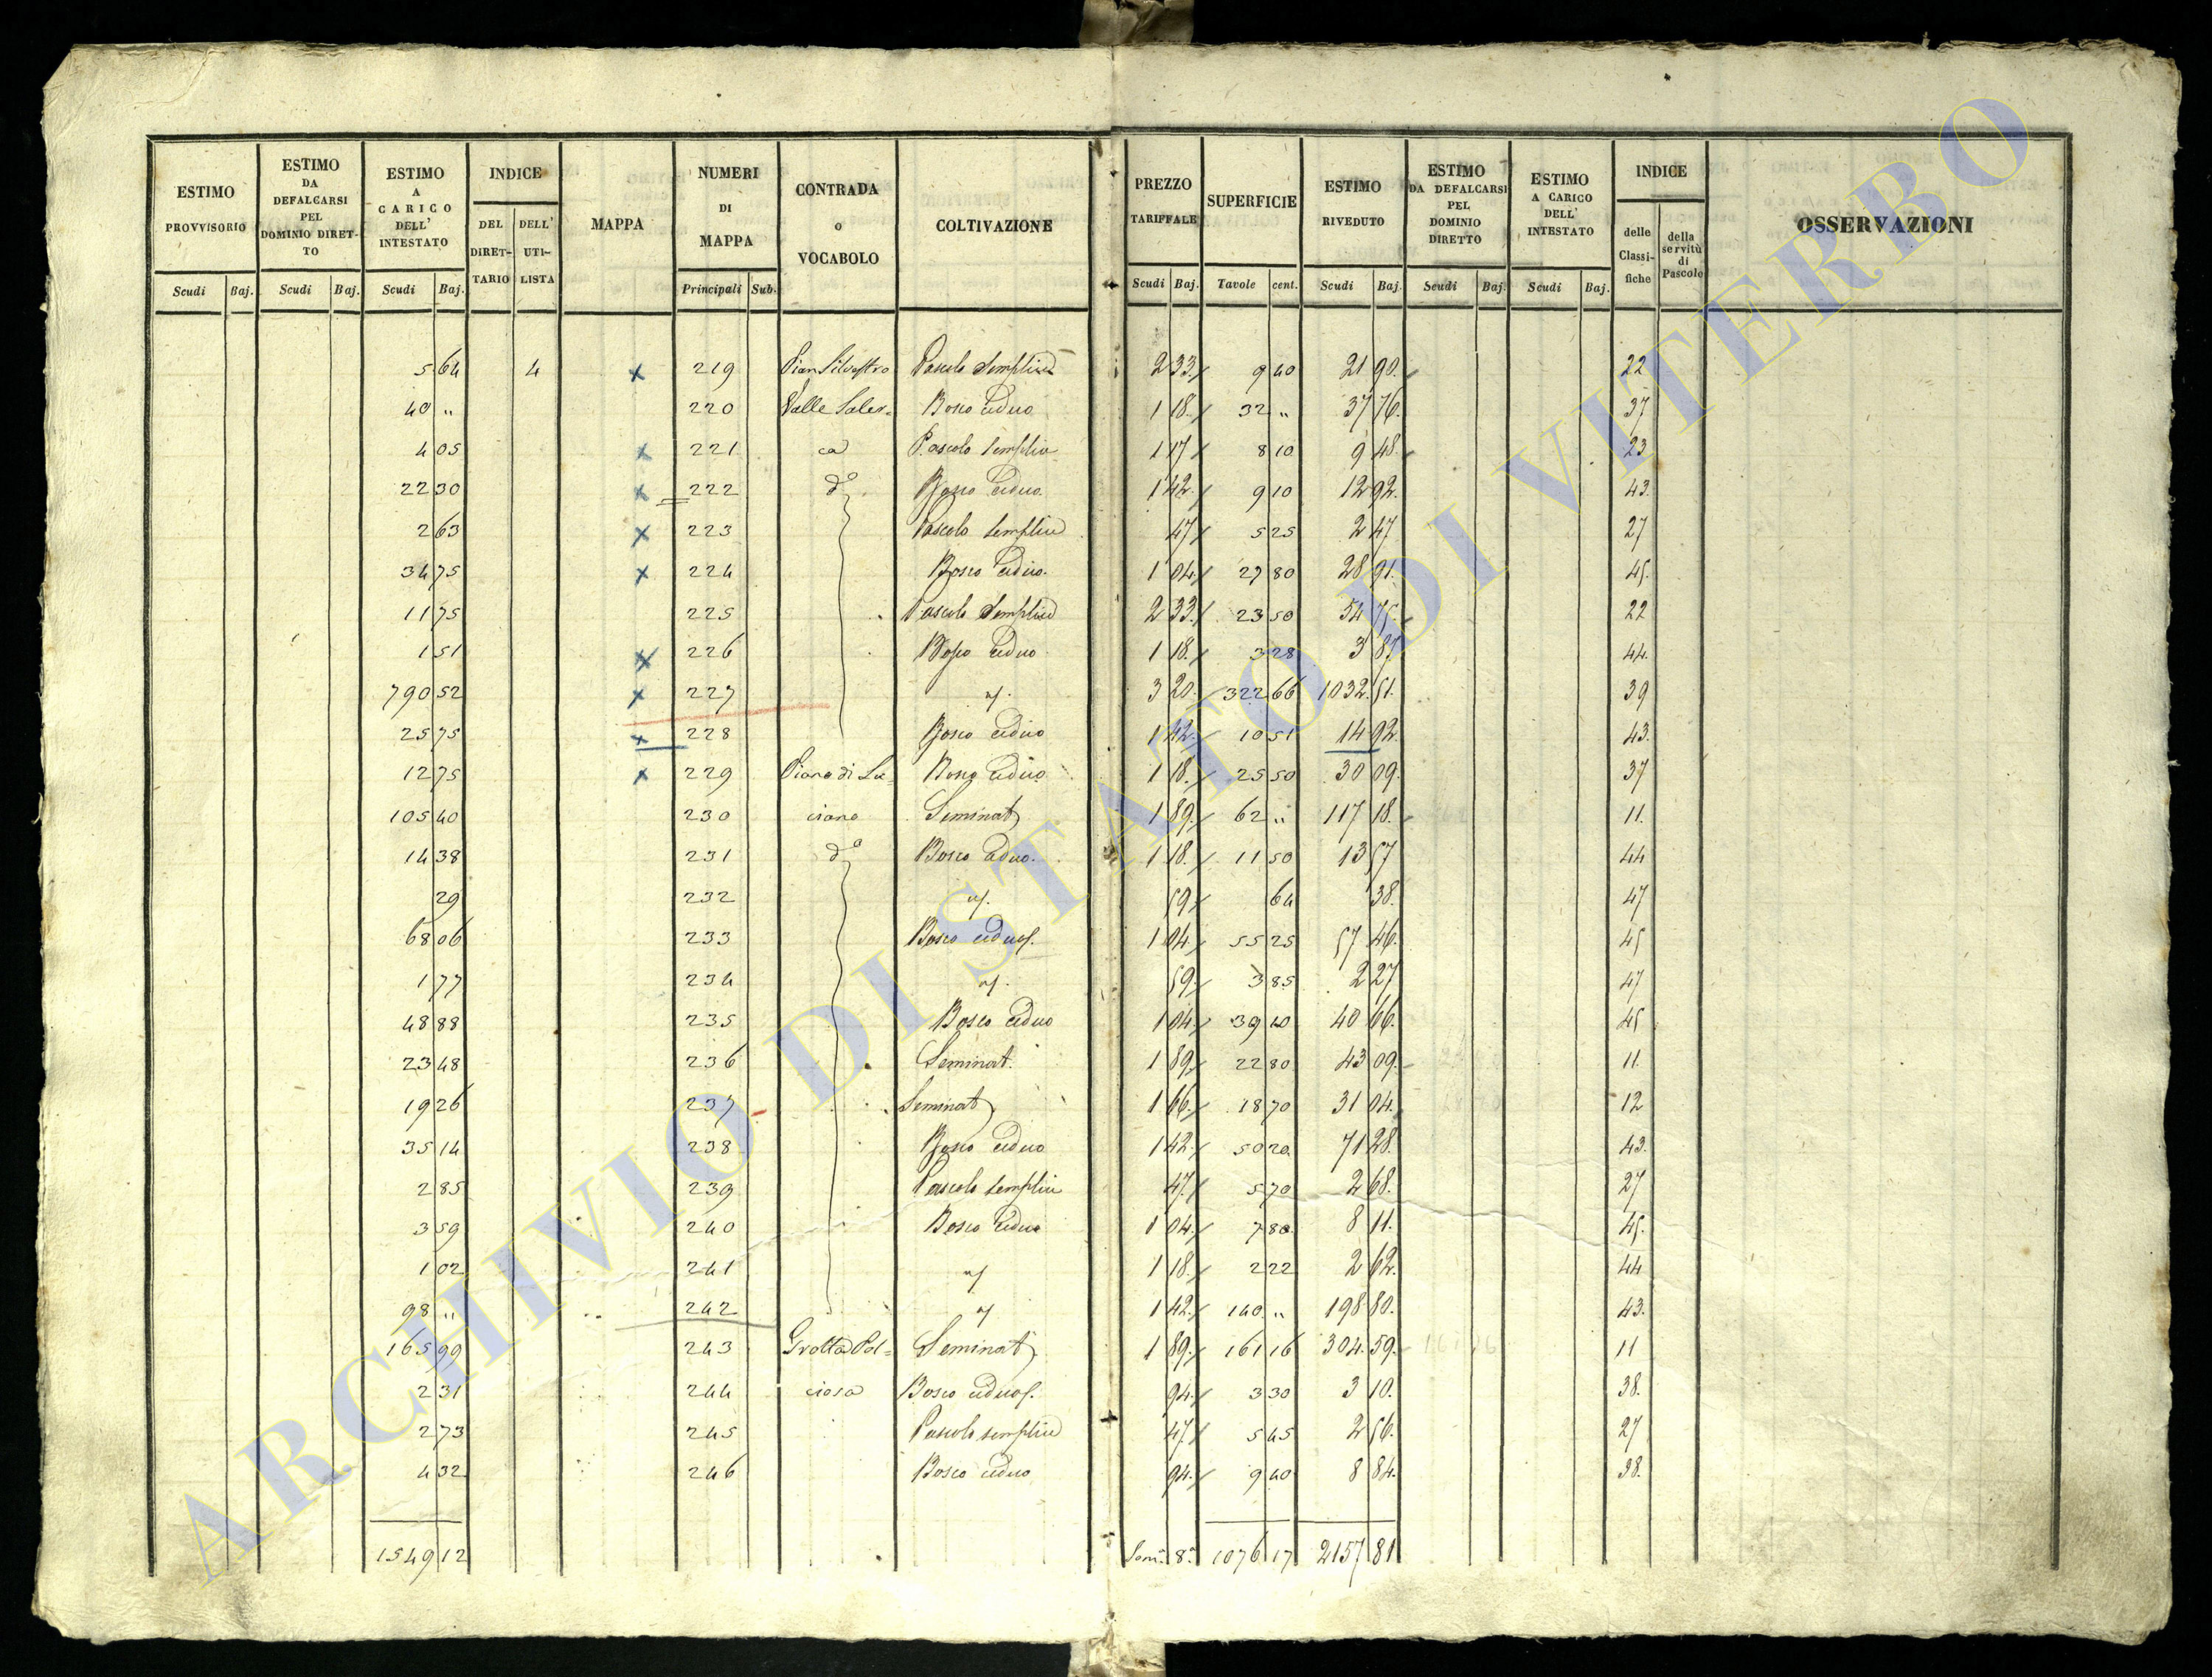 ESTIMO PROVVISORIO
Scudi Baj.
ESTIMO DA DEFALCARSI PEL DOMINIO DIRET-TO
Scudi Baj.
ESTIMO A CARICO DELL' INTESTATO
Scudi Baj.
INDICE
DEL DIRET-TARIO
DELL' UTI-LISTA
MAPPA
NUMERI DI MAPPA
Principali Sub.
CONTRADA o VOCABOLO
COLTIVAZIONE
PREZZO TARIFFALE
Scudi Baj.
SUPERFICIE
Tavole cent.
ESTIMO RIVEDUTO
Scudi Baj.
ESTIMO DA DEFALCARSI PEL DOMINIO DIRETTO
Scudi Baj.
ESTIMO A CARICO DELL' INTESTATO
Scudi Baj.
INDICE
delle Classi-fiche
della servitù di Pascolo
OSSERVAZIONI
5 64 4 x 219 Pian Silvestro Pascolo Semplice 2 33 9 40 21 90. 22
40 " 220 Valle Saler= Bosco Ceduo 1 18. 32 " 37 76. 37
4 05 x 221 ca Pascolo semplice 1 17 8 10 9 48. 23
22 30 x 222 d° Bosco Ceduo 1 42. 9 10 12 92. 43.
2 63 x 223 Pascolo semplice 47 5 25 2 47 27
34 75 x 224 Bosco Ceduo. 1 04. 27 80 28 91. 45.
11 75 225 Pascolo Semplice 2 33. 23 50 54 75. 22
1 51 x 226 Bosco Ceduo 1 18. 3 28 3 87 44.
790 52 x 227 3 20. 322 66 1032. 51. 39
25 75 x 228 Bosco Ceduo 1 42. 10 51 14 92. 43.
12 75 x 229 Piano di Lu= Bosco Ceduo 1 18. 25 50 30 09. 37
105 40 230 ciano Seminat 1 89. 62 " 117 18. 11.
14 38 231 d° Bosco Ceduo. 1 18. 11 50 13 57 44
29 232 59 64 38. 47
68 06 233 Bosco Ceduo 1 04. 55 25 57 46. 45
1 77 234 59 3 85 2 27 47
48 88 235 Bosco Ceduo 1 04. 39 10 40 66. 45
23 48 236 Seminat. 1 89. 22 80 43 09. 11.
19 26 237 Seminat 1 66. 18 70 31 04. 12
35 14 238 Bosco Ceduo 1 42. 50 20 71 28. 43.
2 85 239 Pascolo semplice 47. 5 70 2 68. 27
3 59 240 Bosco Ceduo 1 04. 7 80 8 11. 45.
1 02 241 1 18. 2 22 2 62. 44
98 " 242 1 42. 140 " 198 80. 43.
165 99 243 Grotta Pol= Seminat 1 89. 161 16 304. 59. 11
2 31 244 ciosa Bosco Ceduo 94. 3 30 3 10. 38.
2 73 245 Pascolo semplice 47. 5 45 2 56. 27
4 32 246 Bosco Ceduo 94. 9 40 8 84. 38.
1549 12 Som.a 8.a 1076 17 2157 81
ARCHIVIO DI STATO DI VITERBO